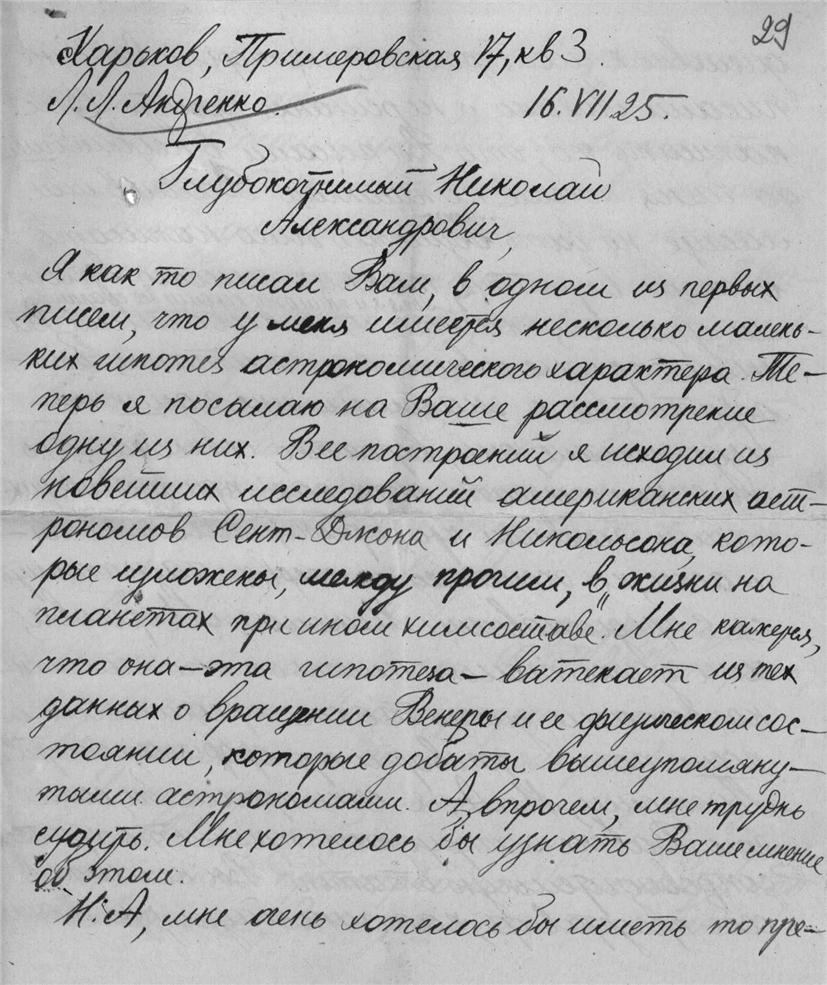 29
Харьков, Примеровская 17, кв 3.
Л. Л. Андренко.
16. VII 25.
Глубокочтимый Николай
Александрович,
Я как то писал Вам, в одном из первых
писем, что у меня имеется несколько малень-
ких гипотез астрономического характера. Те-
перь я посылаю на Ваше рассмотрение
одну из них. В ее построений я исходил из
новейших исследований американских аст-
рономов Сент-Джона и Никольсона, кото-
рые изложены, между прочим, в „жизни на
планетах при ином химсоставе". Мне кажется,
что она – эта гипотеза – вытекает из тех
данных о вращении Венеры и ее физическом сос-
тоянии, которые добыты вышеупомяну-
тыми астрономами. А, впрочем, мне трудно
судить. Мне хотелось бы узнать Ваше мнение
об этом.
Н. А, мне очень хотелось бы иметь то пре-